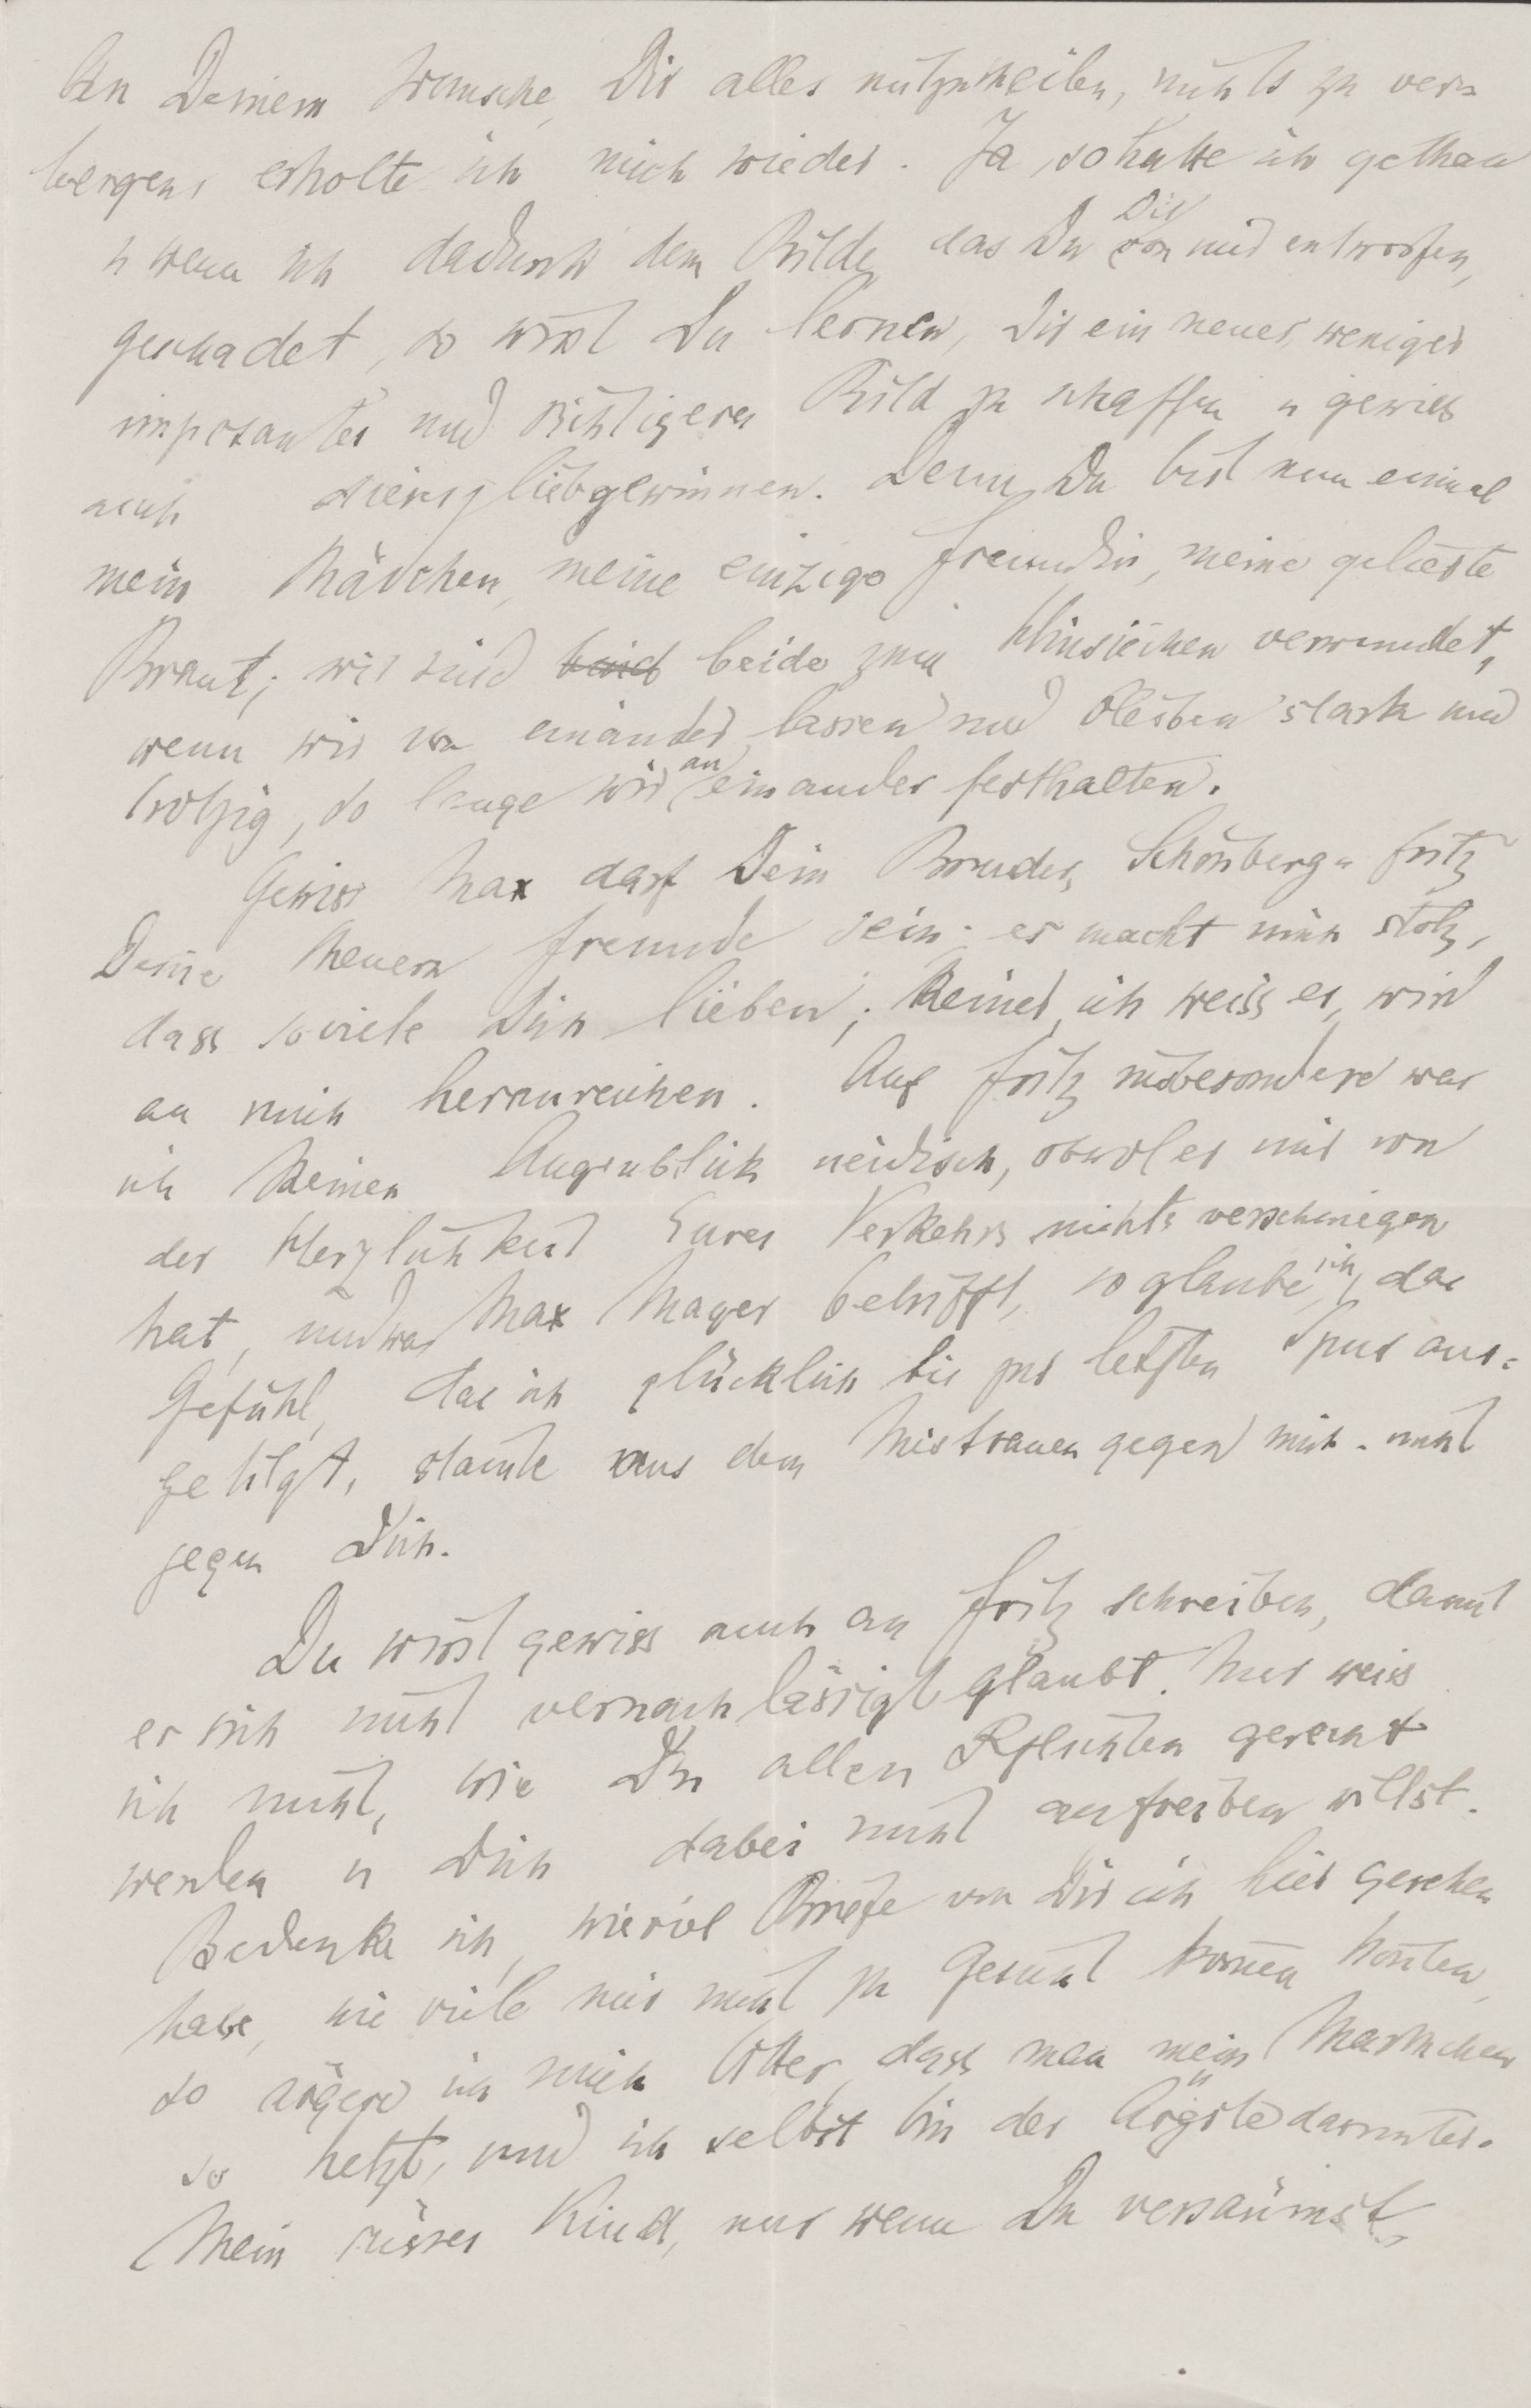 An Deinem Wunsche, Dir alles mitzutheilen, nichts zu ver=
bergen, erholte ich mich wieder. Ja, so hatte ich gethan
u wenn ich dadurch dem Bilde, das Du Dir von mir entworfen,
geschadet, so wirst Du lernen, Dir ein neues, weniger
imposantes und richtigeres Bild zu schaffen u gewiß
auch dieses liebgewinnen. Denn Du bist nun einmal
mein Mädchen, meine einzige Freundin, meine geliebte
Braut; wir sind beide zum Hinsiechen verwundet,
wenn wir von einander lassen und bleiben stark und
trotzig, so lange wir an einander festhalten.
Gewiss Max darf Dein Bruder, Schönberg u Fritz
Deine theuern Freunde sein; es macht mich stolz,
dass so viele Dich lieben; keiner, ich weiss es, wird
an mich heranreichen. Auf Fritz insbesondere war
ich keinen Augenblick neidisch, obwol er mir von
der Herzlichkeit Eures Verkehrs nichts verschwiegen
hat, und was Max Mayer betrifft, so glaube ich, das
Gefühl, das ich glücklich bis zur letzten Spur aus=
getilgt, stam̅te aus dem Mistrauen gegen mich – nicht
gegen Dich.
Du wirst gewiss auch an Fritz schreiben, damit
er sich nicht vernachlässigt glaubt. Nur weiss
ich nicht, wie Du allen Pflichten gerecht
werden u Dich dabei nicht aufreiben willst.
Bedenke ich, wieviel Briefe von Dir ich hier gesehen
habe, wie viele mir nicht zu Gesicht kom̅en kon̅ten,
so ärgere ich mich bitter, dass man mein Marthchen
so hetzt, und ich selbst bin der Ärgste darunter.
Mein süsses Kind, nur wenn Du versäumst,